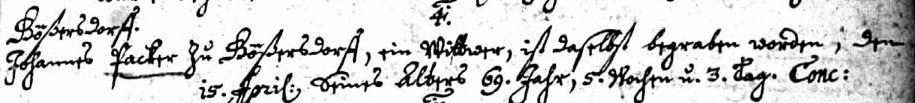 4.
Gößersdorff.
Johannes Packer zu Gößersdorff, ein Wittwer, ist daselbst begraben worden, den
15. April: seines Alters 69. Jahr, 5. Wochen u. 3. Tag. Conc: